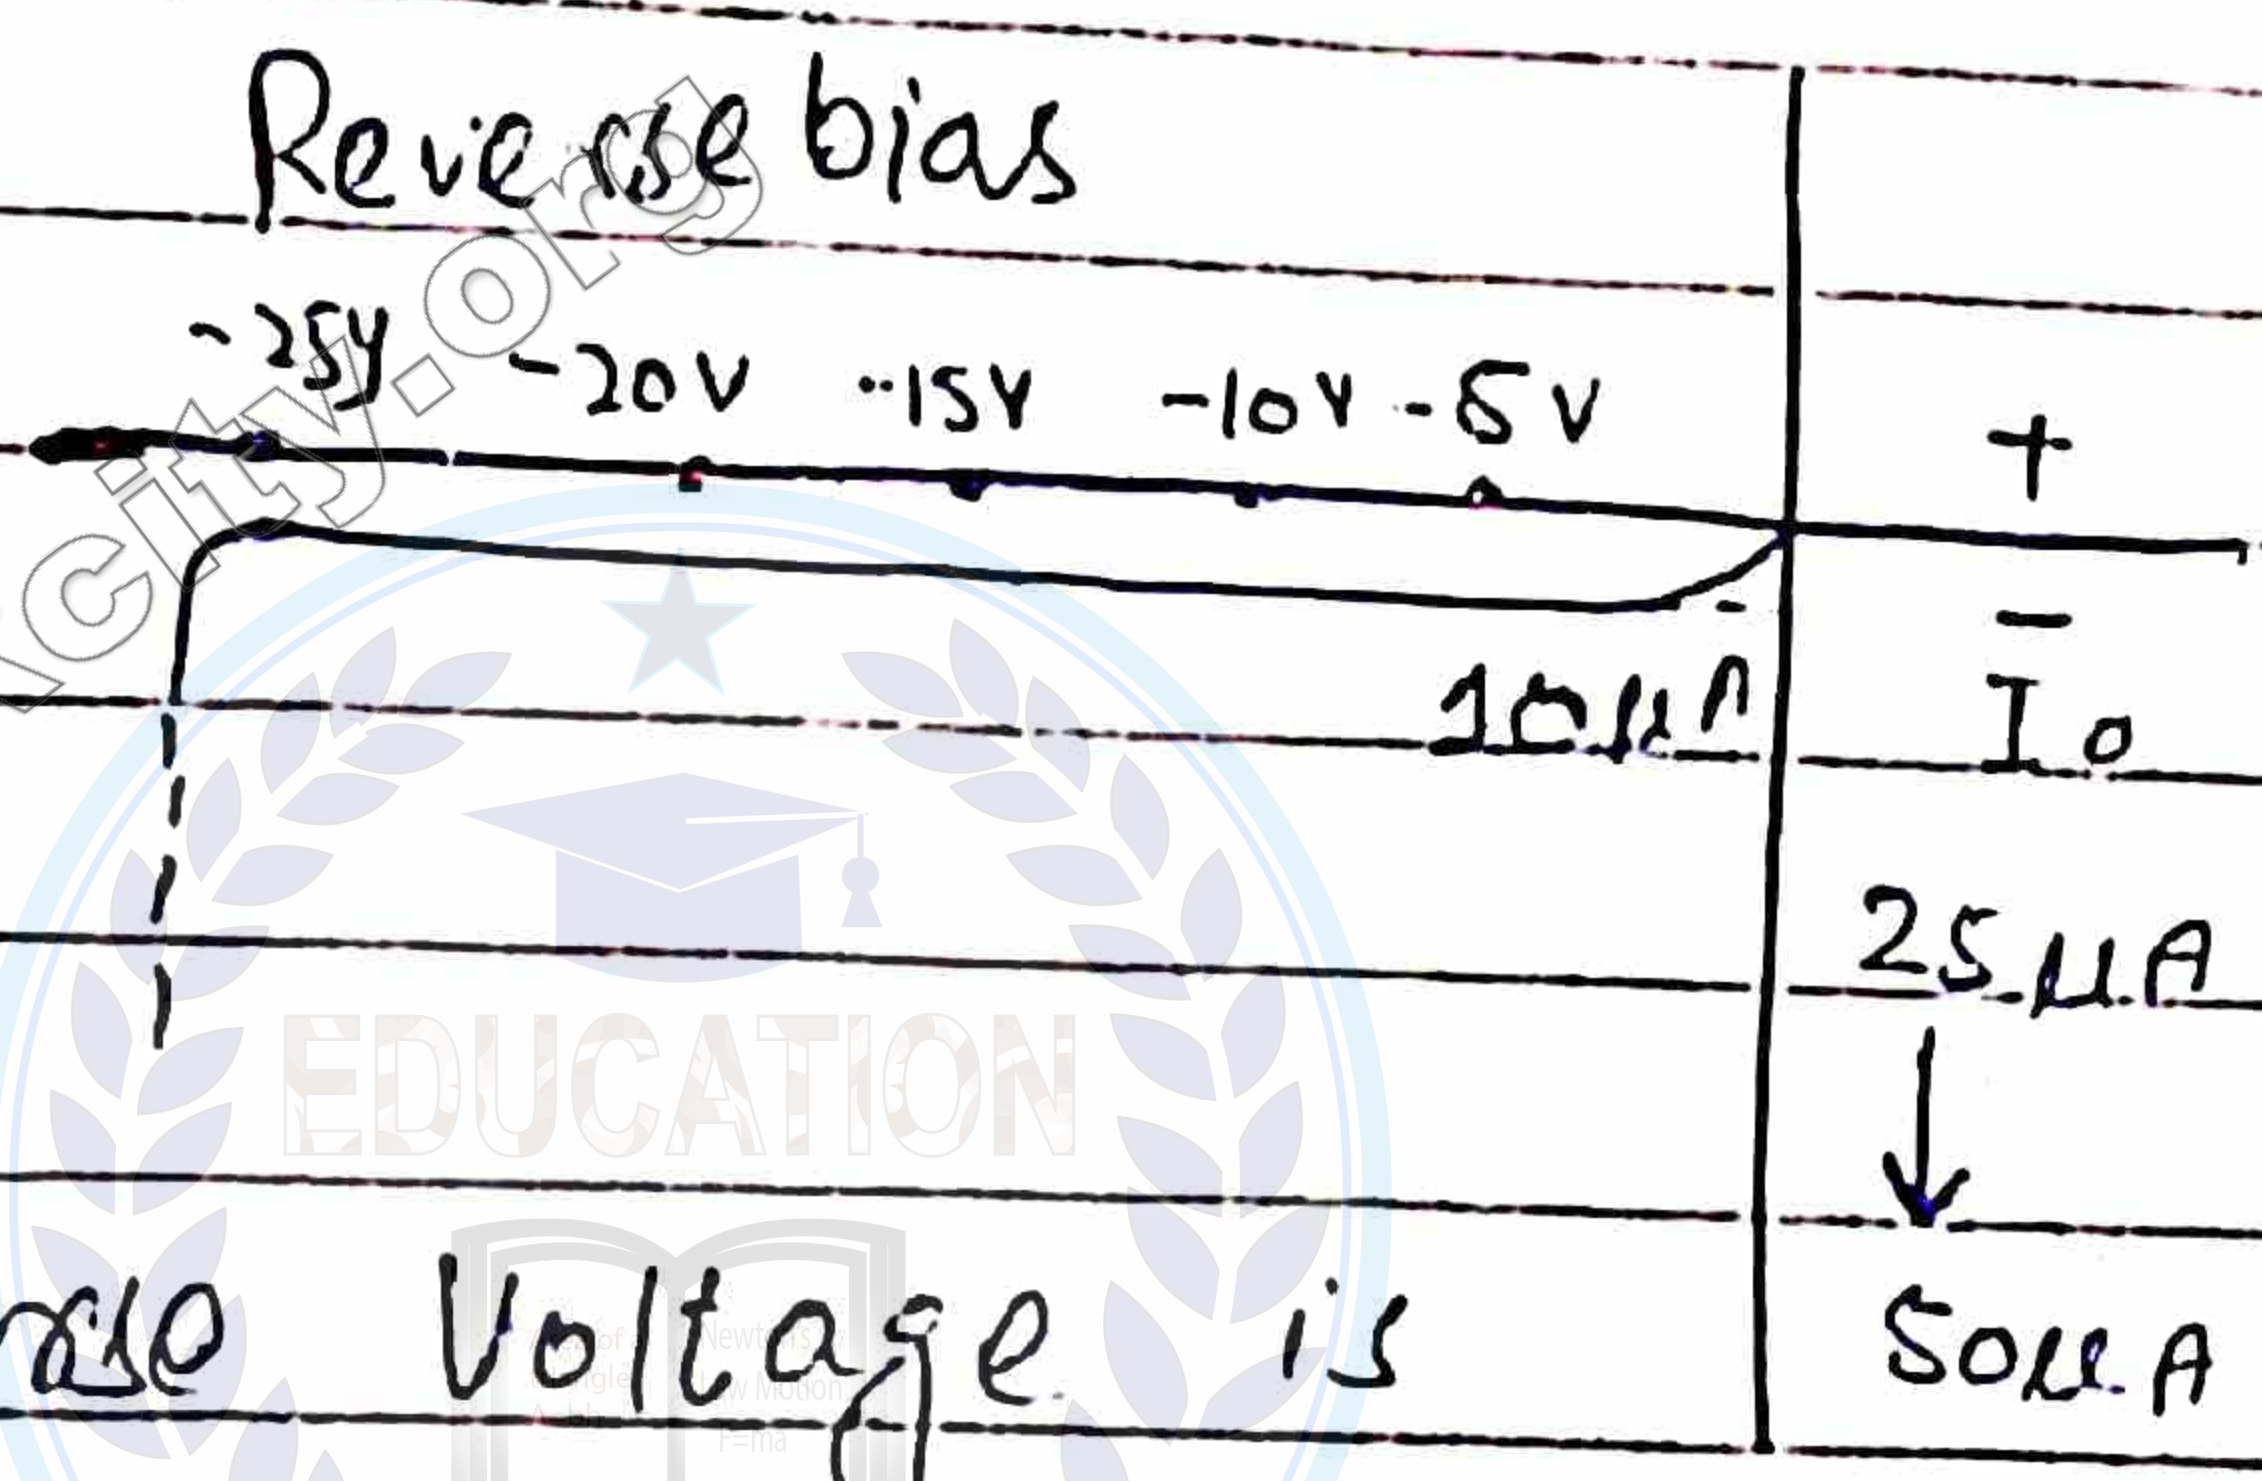 Reverse bias
-25V -20V -15V -10V -5V
+
-
10μA
Io
25μA
50μA
Voltage is
city.org
EDUCATION
F=ma